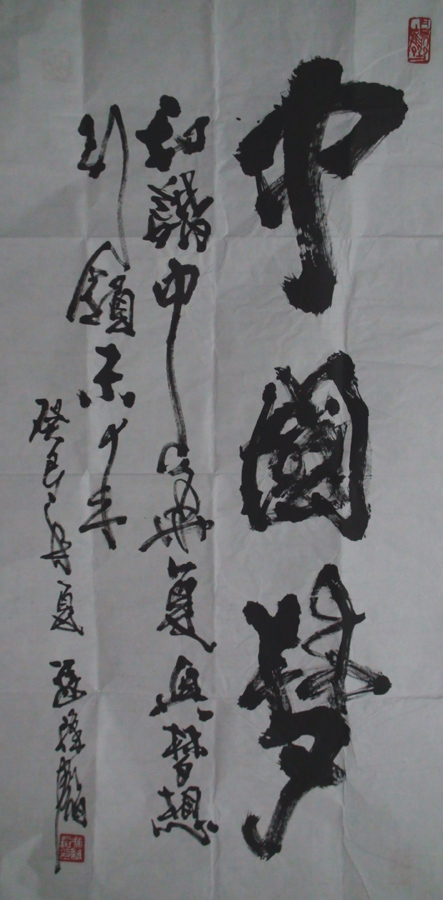 中國夢
和諧中華復興夢想
引領示千年
癸巳年夏